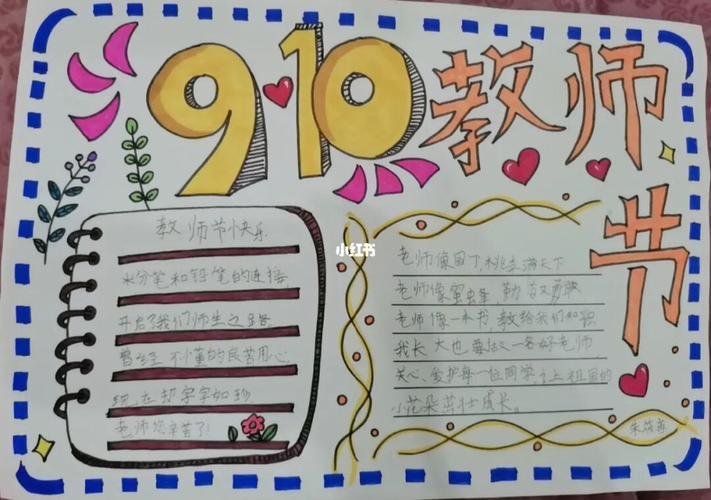 910教师节
教师节快乐
粉笔和铅笔的连接
开启了我们师生之路
曾经不懂的良苦用心
现在却字字如珍
老师您辛苦了!
小红书
老师像园丁,桃李满天下
老师像蜜蜂,勤
老师像一本书,教给我们知识
我长大也要做一名好老师
关心、爱护每一位同学,让祖国的
小花朵茁壮成长。
朱